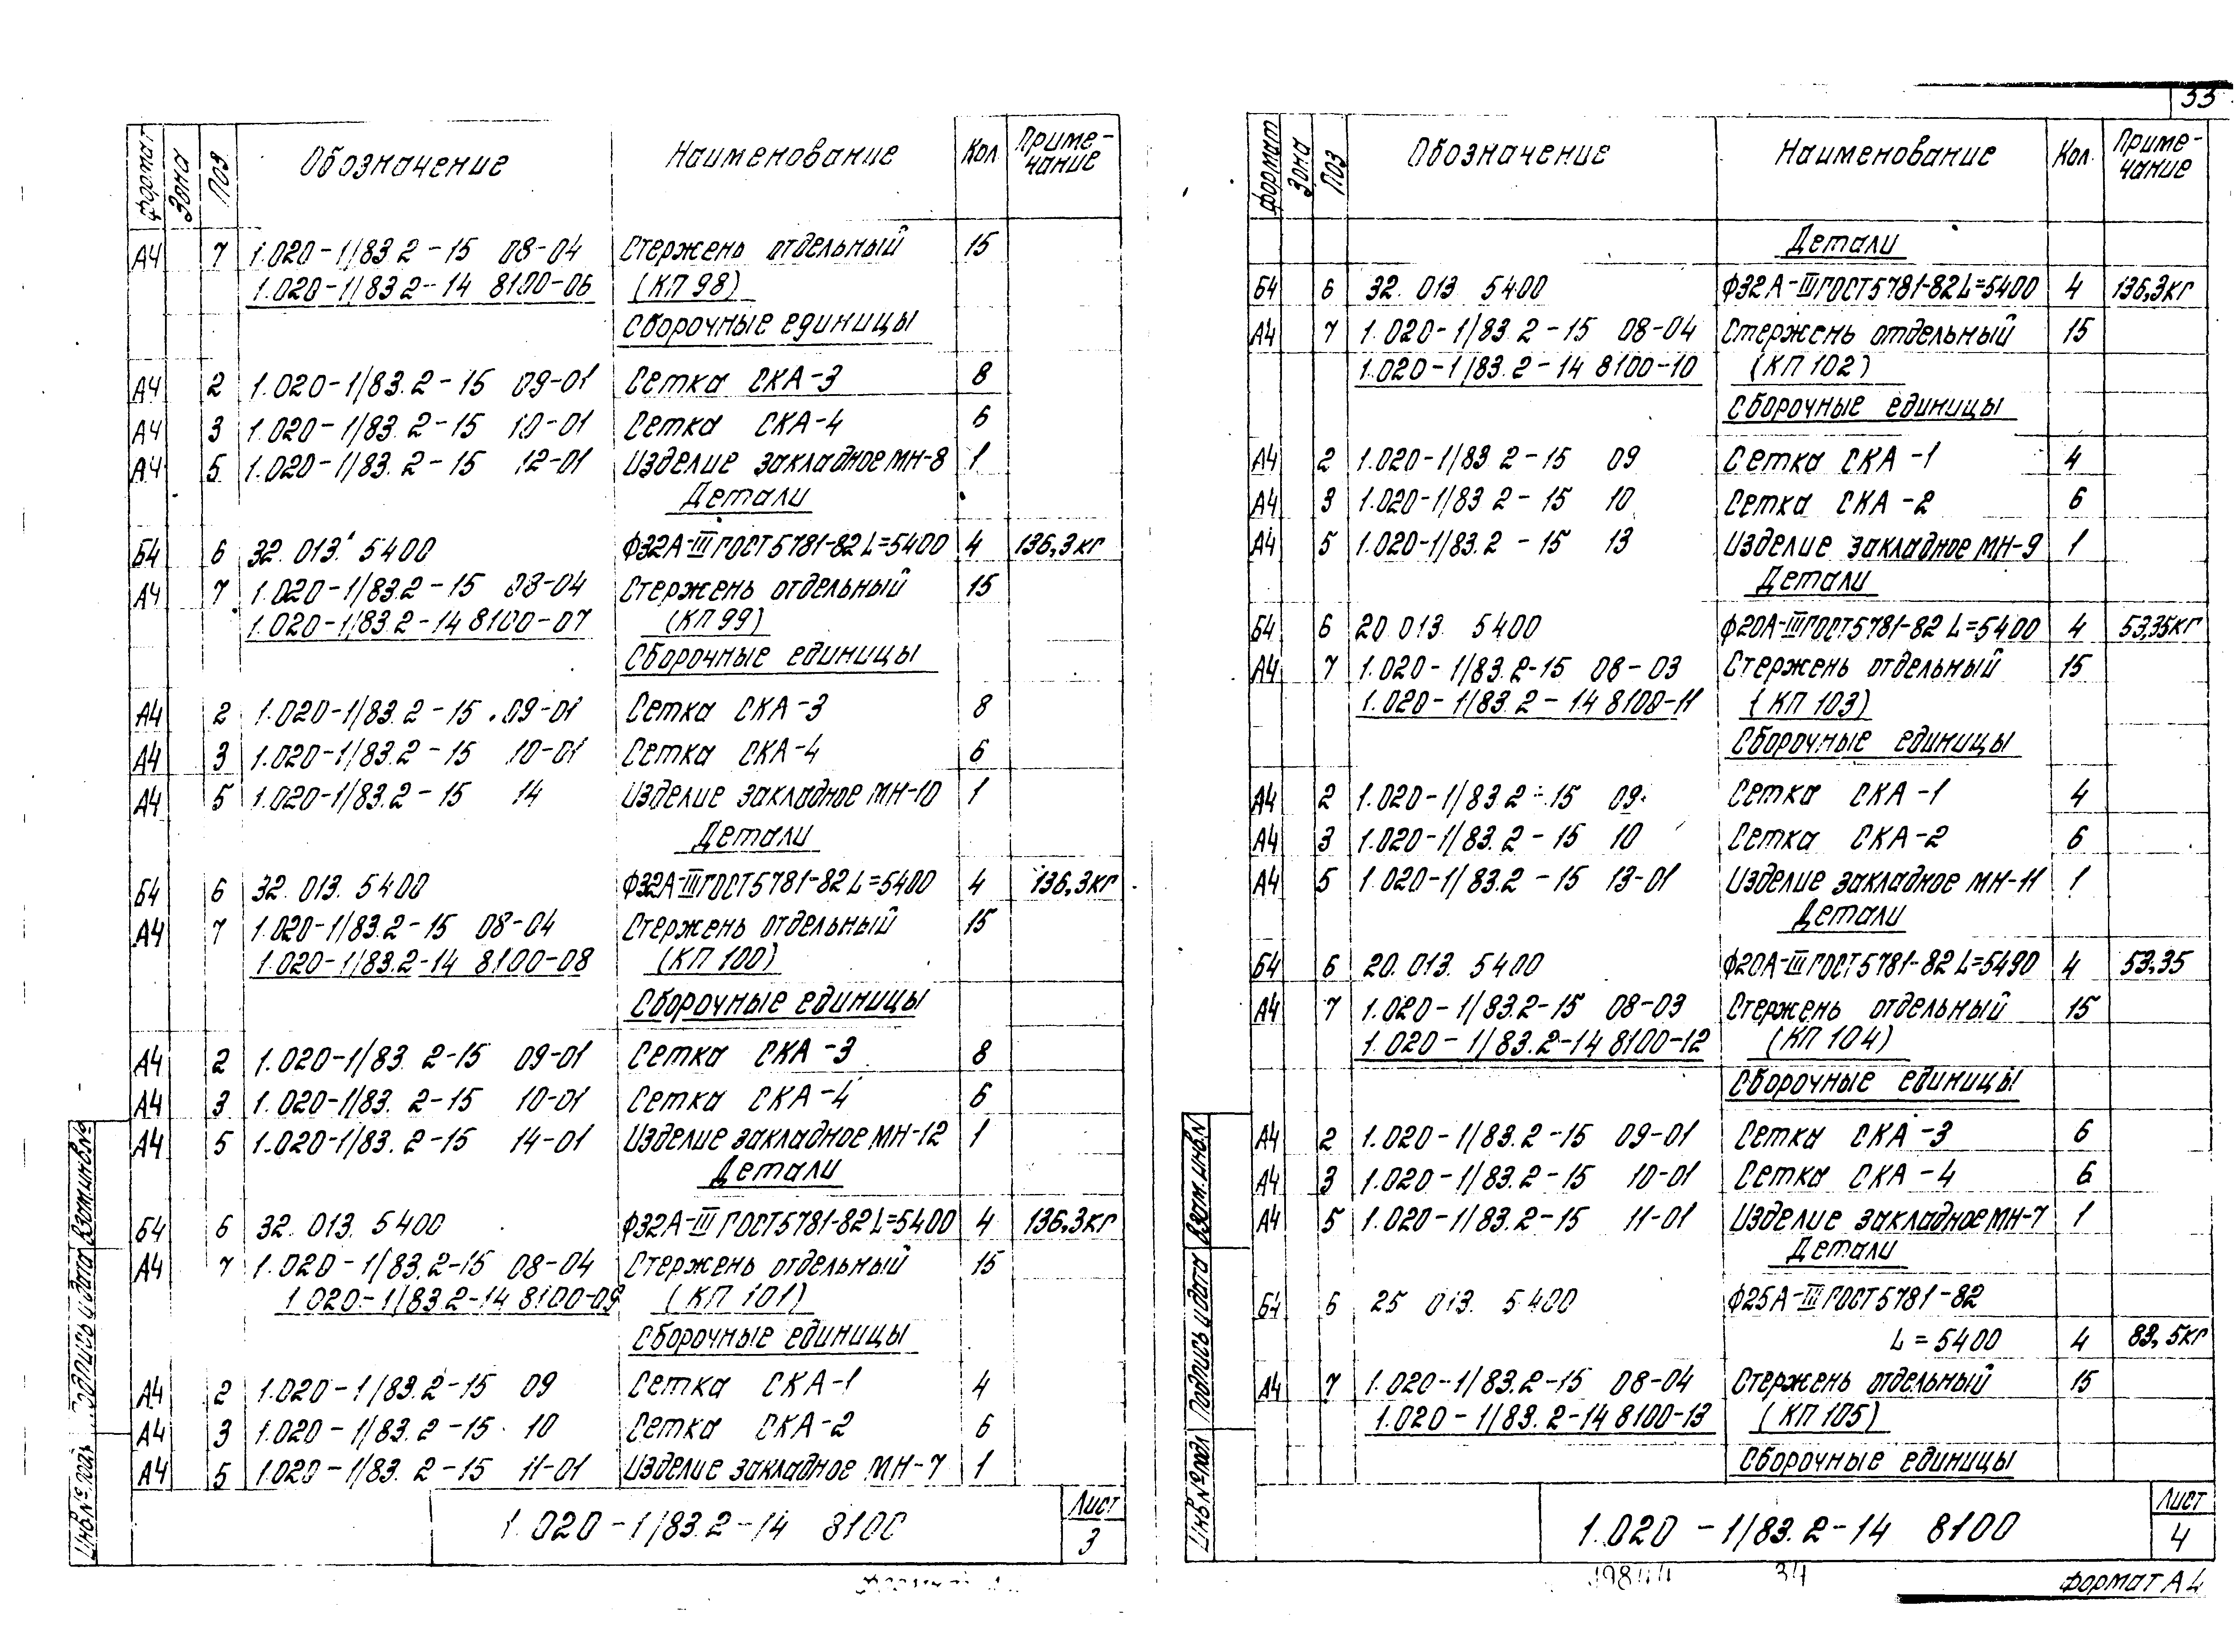 33
Формат Зона Поз Обозначение Наименование Кол Приме-
чание
А4 7 1.020-1/83 2-15 08-04 Стержень отдельный 15
1.020-1/83 2-14 8100-06 (КП 98)
Сборочные единицы
А4 2 1.020-1/83. 2-15 09-01 Сетка СКА-3 8
А4 3 1.020-1/83. 2-15 10-01 Сетка СКА-4 6
А4 5 1.020-1/83. 2-15 12-01 Изделие закладное МН-8 1
Детали
Б4 6 32. 013. 5400 Ф32А-III ГОСТ 5781-82 L=5400 4 136,3кг
А4 7 1.020-1/83.2-15 08-04 Стержень отдельный 15
1.020-1/83.2-14 8100-07 (КП 99)
Сборочные единицы
А4 2 1.020-1/83.2-15 09-01 Сетка СКА-3 8
А4 3 1.020-1/83.2-15 10-01 Сетка СКА-4 6
А4 5 1.020-1/83.2-15 14 Изделие закладное МН-10 1
Детали
Б4 6 32. 013. 5400 Ф32А-III ГОСТ 5781-82 L=5400 4 136,3кг
А4 7 1.020-1/83.2-15 08-04 Стержень отдельный 15
1.020-1/83.2-14 8100-08 (КП 100)
Сборочные единицы
А4 2 1.020-1/83. 2-15 09-01 Сетка СКА-3 8
А4 3 1.020-1/83. 2-15 10-01 Сетка СКА-4 6
А4 5 1.020-1/83. 2-15 14-01 Изделие закладное МН-12 1
Детали
Б4 6 32. 013. 5400 Ф32А-III ГОСТ 5781-82 L=5400 4 136,3кг
А4 7 1.020-1/83.2-15 08-04 Стержень отдельный 15
1.020-1/83.2-14 8100-09 (КП 101)
Сборочные единицы
А4 2 1.020-1/83.2-15 09 Сетка СКА-1 4
А4 3 1.020-1/83.2-15 10 Сетка СКА-2 6
А4 5 1.020-1/83. 2-15 11-01 Изделие закладное МН-7 1
1.020-1/83.2-14 8100
Лист
3
Инв.№ подл
Подпись и дата
Взам.инв.№
Формат Зона Поз Обозначение Наименование Кол. Приме-
чание
Детали
Б4 6 32. 013. 5400 Ф32А-III ГОСТ 5781-82 L=5400 4 136,3кг
А4 7 1.020-1/83.2-15 08-04 Стержень отдельный 15
1.020-1/83.2-14 8100-10 (КП 102)
Сборочные единицы
А4 2 1.020-1/83 2-15 09 Сетка СКА-1 4
А4 3 1.020-1/83 2-15 10 Сетка СКА-2 6
А4 5 1.020-1/83.2-15 13 Изделие закладное МН-9 1
Детали
Б4 6 20 013 5400 Ф20А-III ГОСТ 5781-82 L=5400 4 53,35кг
А4 7 1.020-1/83.2-15 08-03 Стержень отдельный 15
1.020-1/83.2-14 8100-11 (КП 103)
Сборочные единицы
А4 2 1.020-1/83 2-15 09 Сетка СКА-1 4
А4 3 1.020-1/83.2-15 10 Сетка СКА-2 6
А4 5 1.020-1/83.2-15 13-01 Изделие закладное МН-11 1
Детали
Б4 6 20. 013. 5400 Ф20А-III ГОСТ 5781-82 L=5490 4 53,35
А4 7 1.020-1/83.2-15 08-03 Стержень отдельный 15
1.020-1/83.2-14 8100-12 (КП 104)
Сборочные единицы
А4 2 1.020-1/83.2-15 09-01 Сетка СКА-3 6
А4 3 1.020-1/83.2-15 10-01 Сетка СКА-4 6
А4 5 1.020-1/83.2-15 11-01 Изделие закладное МН-7 1
Детали
Б4 6 25 013. 5400 Ф25А-III ГОСТ 5781-82
L=5400 4 83,5кг
А4 7 1.020-1/83.2-15 08-04 Стержень отдельный 15
1.020-1/83.2-14 8100-13 (КП 105)
Сборочные единицы
1.020-1/83.2-14 8100
Лист
4
Инв.№ подл
Подпись и дата
Взам.инв.N
34
Формат А4